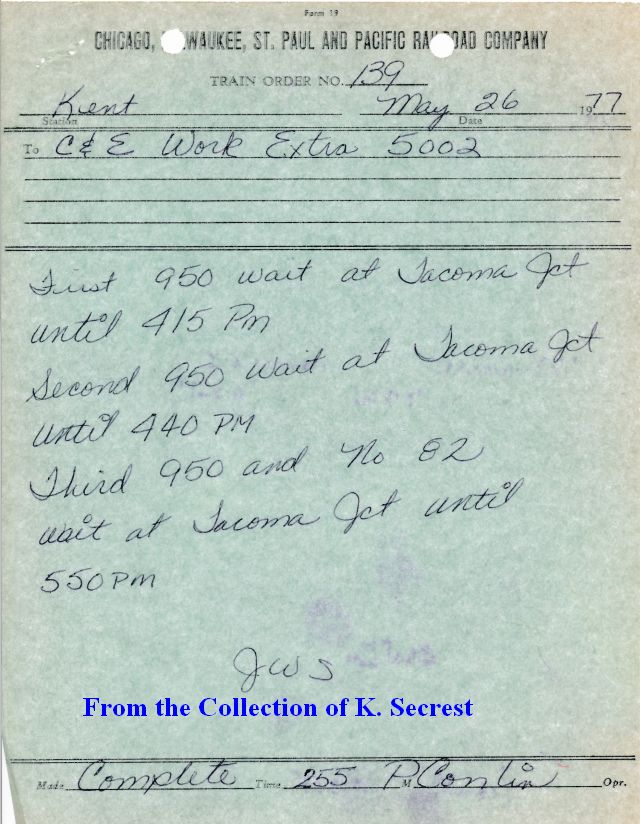 Form 19
CHICAGO, WAUKEE, ST. PAUL AND PACIFIC RAILROAD COMPANY
TRAIN ORDER NO. 139
Kent May 26 1977
Station Date
To C & E Work Extra 5002
First 950 wait at Tacoma Jct
until 415 PM
Second 950 wait at Tacoma Jct
until 440 PM
Third 950 and No 82
wait at Tacoma Jct until
550 PM
JWS
From the Collection of K. Secrest
Made Complete Time 255 P M Conlin Opr.